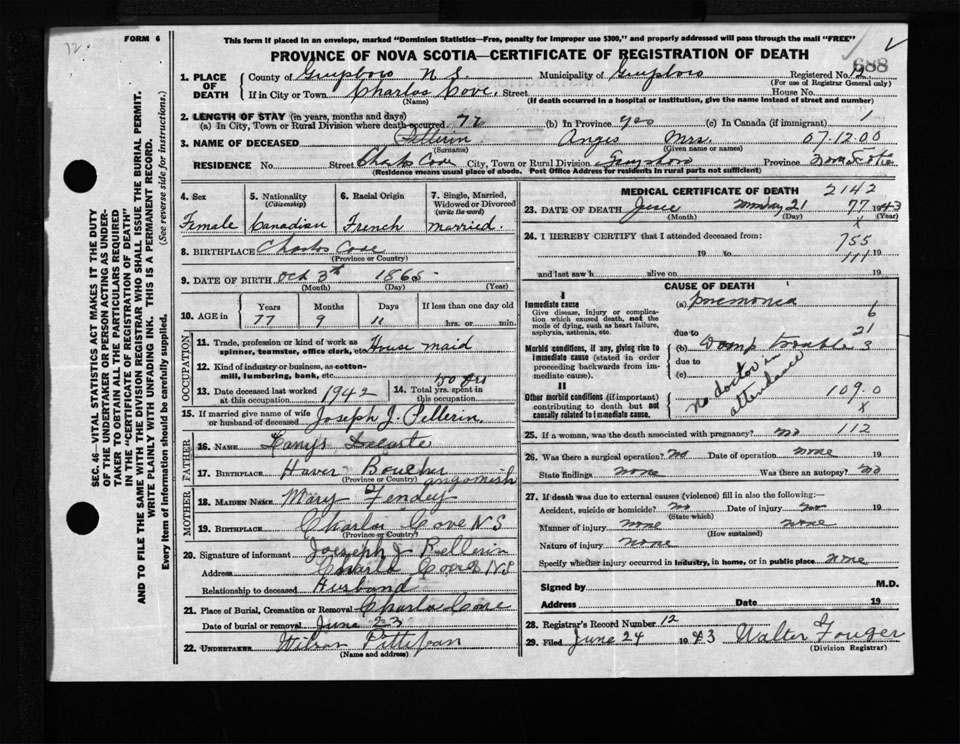 12.
FORM 6
This form if placed in an envelope, marked "Dominion Statistics—Free, penalty for improper use $300," and properly addressed will pass through the mail "FREE"
PROVINCE OF NOVA SCOTIA—CERTIFICATE OF REGISTRATION OF DEATH
688
1. PLACE OF DEATH
County of Guysboro N S. Municipality of Guysboro Registered No. 12
(For use of Registrar General only)
If in City or Town Charlos Cove. Street House No.
(Name) (If death occurred in a hospital or institution, give the name instead of street and number)
2. LENGTH OF STAY (in years, months and days)
(a) In City, Town or Rural Division where death occurred 77 (b) In Province yes (c) In Canada (if immigrant) 1
3. NAME OF DECEASED Pellerin Angie Mrs. 07.12.00
(Surname) (Given name or names)
RESIDENCE No. Street Charlos Cove City, Town or Rural Division Guysboro Province Nova Scotia
(Residence means usual place of abode. Post Office Address for residents in rural parts not sufficient)
4. Sex Female
5. Nationality (Citizenship) Canadian
6. Racial Origin French
7. Single, Married, Widowed or Divorced (write the word) Married.
8. BIRTHPLACE Charlos Cove
(Province or Country)
9. DATE OF BIRTH Oct 3th 1865
(Month) (Day) (Year)
10. AGE in Years 77 Months 9 Days 11 If less than one day old hrs. or min.
OCCUPATION
11. Trade, profession or kind of work as spinner, teamster, office clerk, etc. House maid
12. Kind of industry or business, as cotton-mill, lumbering, bank, etc.
13. Date deceased last worked at this occupation 1942
14. Total yrs. spent in this occupation 50 yrs
15. If married give name of wife or husband of deceased Joseph J. Pellerin
FATHER
16. NAME
17. BIRTHPLACE Haver Boucher
(Province or Country)
MOTHER
18. MAIDEN NAME Mary
19. BIRTHPLACE Charlos Cove NS
(Province or Country)
20. Signature of informant Joeseph J Pellerin
Address Charlos Cove NS
Relationship to deceased Husband
21. Place of Burial, Cremation or Removal Charlos Cove
Date of burial or removal June 23
22. UNDERTAKER
(Name and address)
MEDICAL CERTIFICATE OF DEATH 2142
23. DATE OF DEATH June Monday 21 77 1943
(Month) (Day) (Year)
x
24. I HEREBY CERTIFY that I attended deceased from:
755
19 to 111 19
and last saw h alive on 19
CAUSE OF DEATH
I
Immediate cause (a) pnemonia
Give disease, injury or complication which caused death, not the mode of dying, such as heart failure, asphyxia, asthenia, etc.
6
due to 21
Morbid conditions, if any, giving rise to immediate cause (stated in order proceeding backwards from immediate cause).
(b) trouble 3
due to
(c)
no doctor in attendance
II
Other morbid conditions (if important) contributing to death but not causally related to immediate cause.
109.0
x
25. If a woman, was the death associated with pregnancy? no 112
26. Was there a surgical operation? no Date of operation none
State findings none Was there an autopsy? no
27. If death was due to external causes (violence) fill in also the following:—
Accident, suicide or homicide? no Date of injury no 19
(State which)
Manner of injury none none
(How sustained)
Nature of injury none
Specify whether injury occurred in industry, in home, or in public place none
Signed by M.D.
Address Date 19
28. Registrar's Record Number 12
29. Filed June 24 1943 Walter Fouger
(Division Registrar)
SEC. 46—VITAL STATISTICS ACT MAKES IT THE DUTY
OF THE UNDERTAKER OR PERSON ACTING AS UNDER-
TAKER TO OBTAIN ALL THE PARTICULARS REQUIRED
IN THE "CERTIFICATE OF REGISTRATION OF DEATH"
AND TO FILE THE SAME WITH THE DIVISION REGISTRAR WHO SHALL ISSUE THE BURIAL PERMIT.
WRITE PLAINLY WITH UNFADING INK. THIS IS A PERMANENT RECORD.
Every item of information should be carefully supplied. (See reverse side for instructions.)